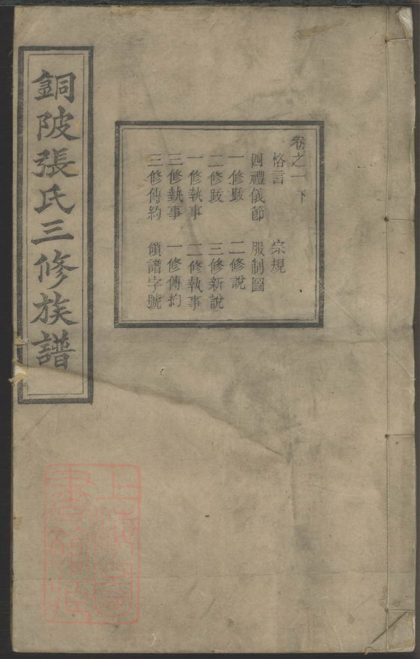 銅陂張氏三修族譜
卷之一下
恪言　宗規
四禮儀節　服制圖
一修跋　二修說
二修跋　三修新說
一修執事　二修執事
三修執事　一修傳約
三修傳約　領譜字號